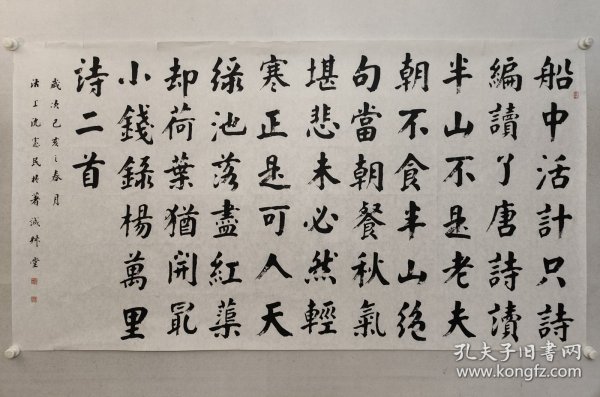 船中活計只詩
編讀了唐詩讀
半山不是老夫
朝不食半山絶
句當朝餐秋氣
堪悲未必然輕
寒正是可人天
緑池落盡紅蕖
却荷葉猶開最
小錢錄楊萬里
詩二首
歲次己亥之春月
沈憲民
堂
孔夫子旧书网
www.kongfz.com